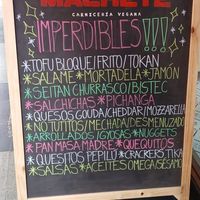 MACHETE
CARNICERÍA VEGANA
IMPERDIBLES!!!
*TOFU BLOQUE/FRITO/TOKAN
*SALAME *MORTADELA *JAMÓN
*SEITAN CHURRASCO/BISTEC
SALCHICHAS *PICHANGA
*QUESOS GOUDA/CHEDDAR/MOZZARELLA
NO TUTITOS/MECHADA/DESMENUZADO
*ARROLLADOS/GYOSAS *NUGGETS
*PAN MASA MADRE *QUEQUITOS
*QUESITOS PEPILÚ *CRACKERS TIKA
*SALSAS *ACEITES OMEGA SÉSAMO